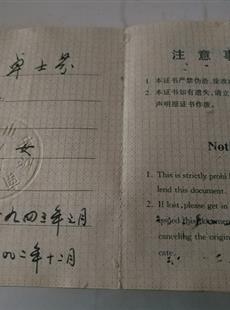 卓士芬
女
一九四三年七月
九九二年十二月
注意事
1. 本证书严禁伪造、涂改
2. 本证书如有遗失,请立
声明原证书作废。
Not
1. This is strictly prohi
lend this document.
2. If lost, please get in
issued this document
canceling the origin
cate.